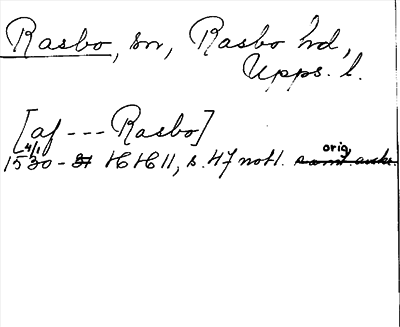 Rasbo, sn, Rasbo hd,
Upps. l.
[af --- Rasbo]
4/1 orig.
1530 - HH 11, s. 47 not 1.